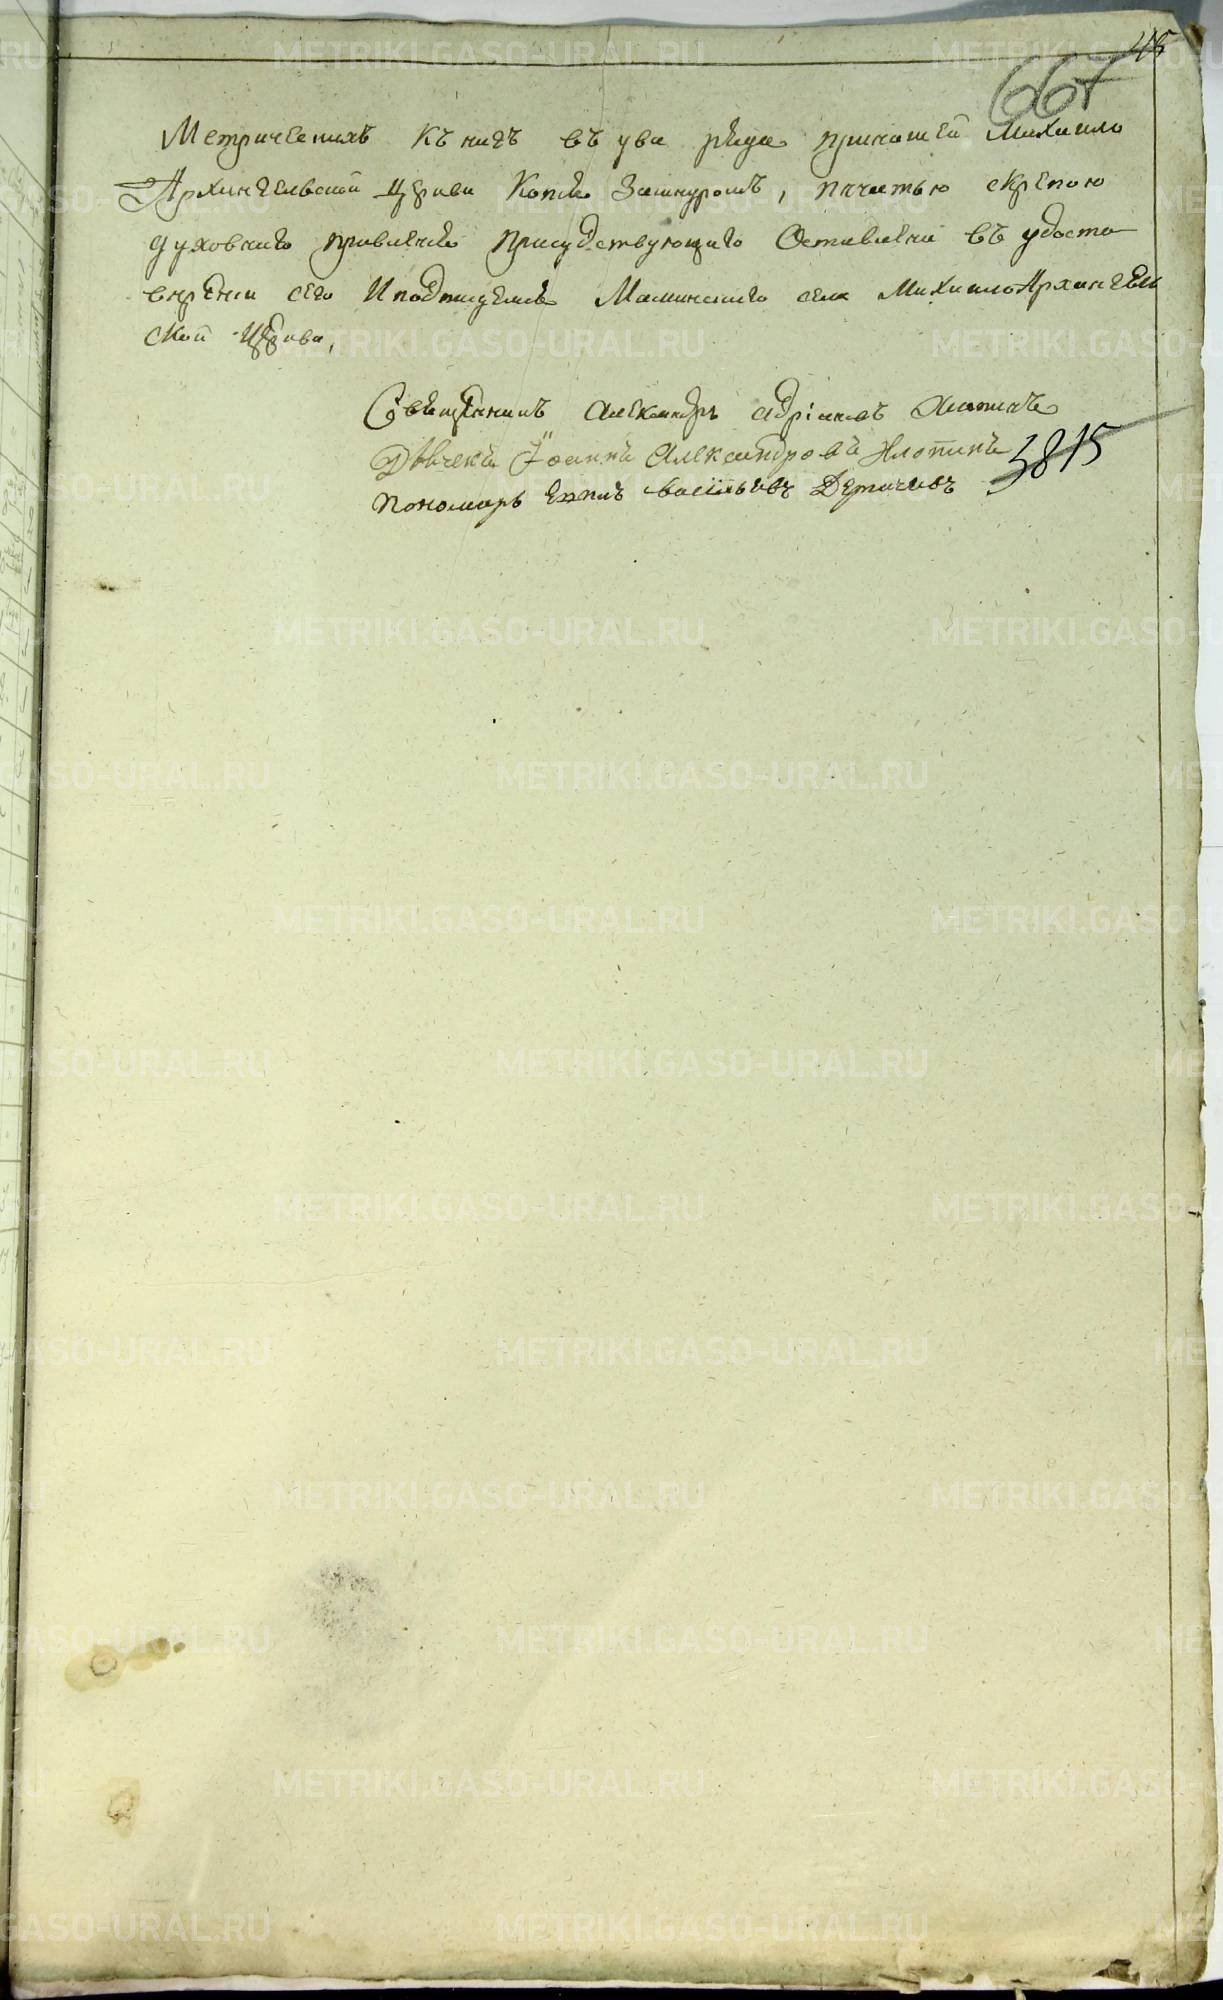 45
667
Метрическихъ Къ нигъ въ ува ряда принашей Михаило
Архангельской Церкви Копiи Зашнуромъ, пѣчатью скрепою
духовнаго правленiя Присудствующаго Оставлены въ удосто
верѣнiи сего Иподписуемся Маминскаго села МихаилоАрхангель
ской Церкви,
Священникъ Александръ Адрiановъ
Дьячекъ Iоаннъ Александровъ Хлопинъ
3815
пономарь Васильевъ
METRIKI.GASO-URAL.RU